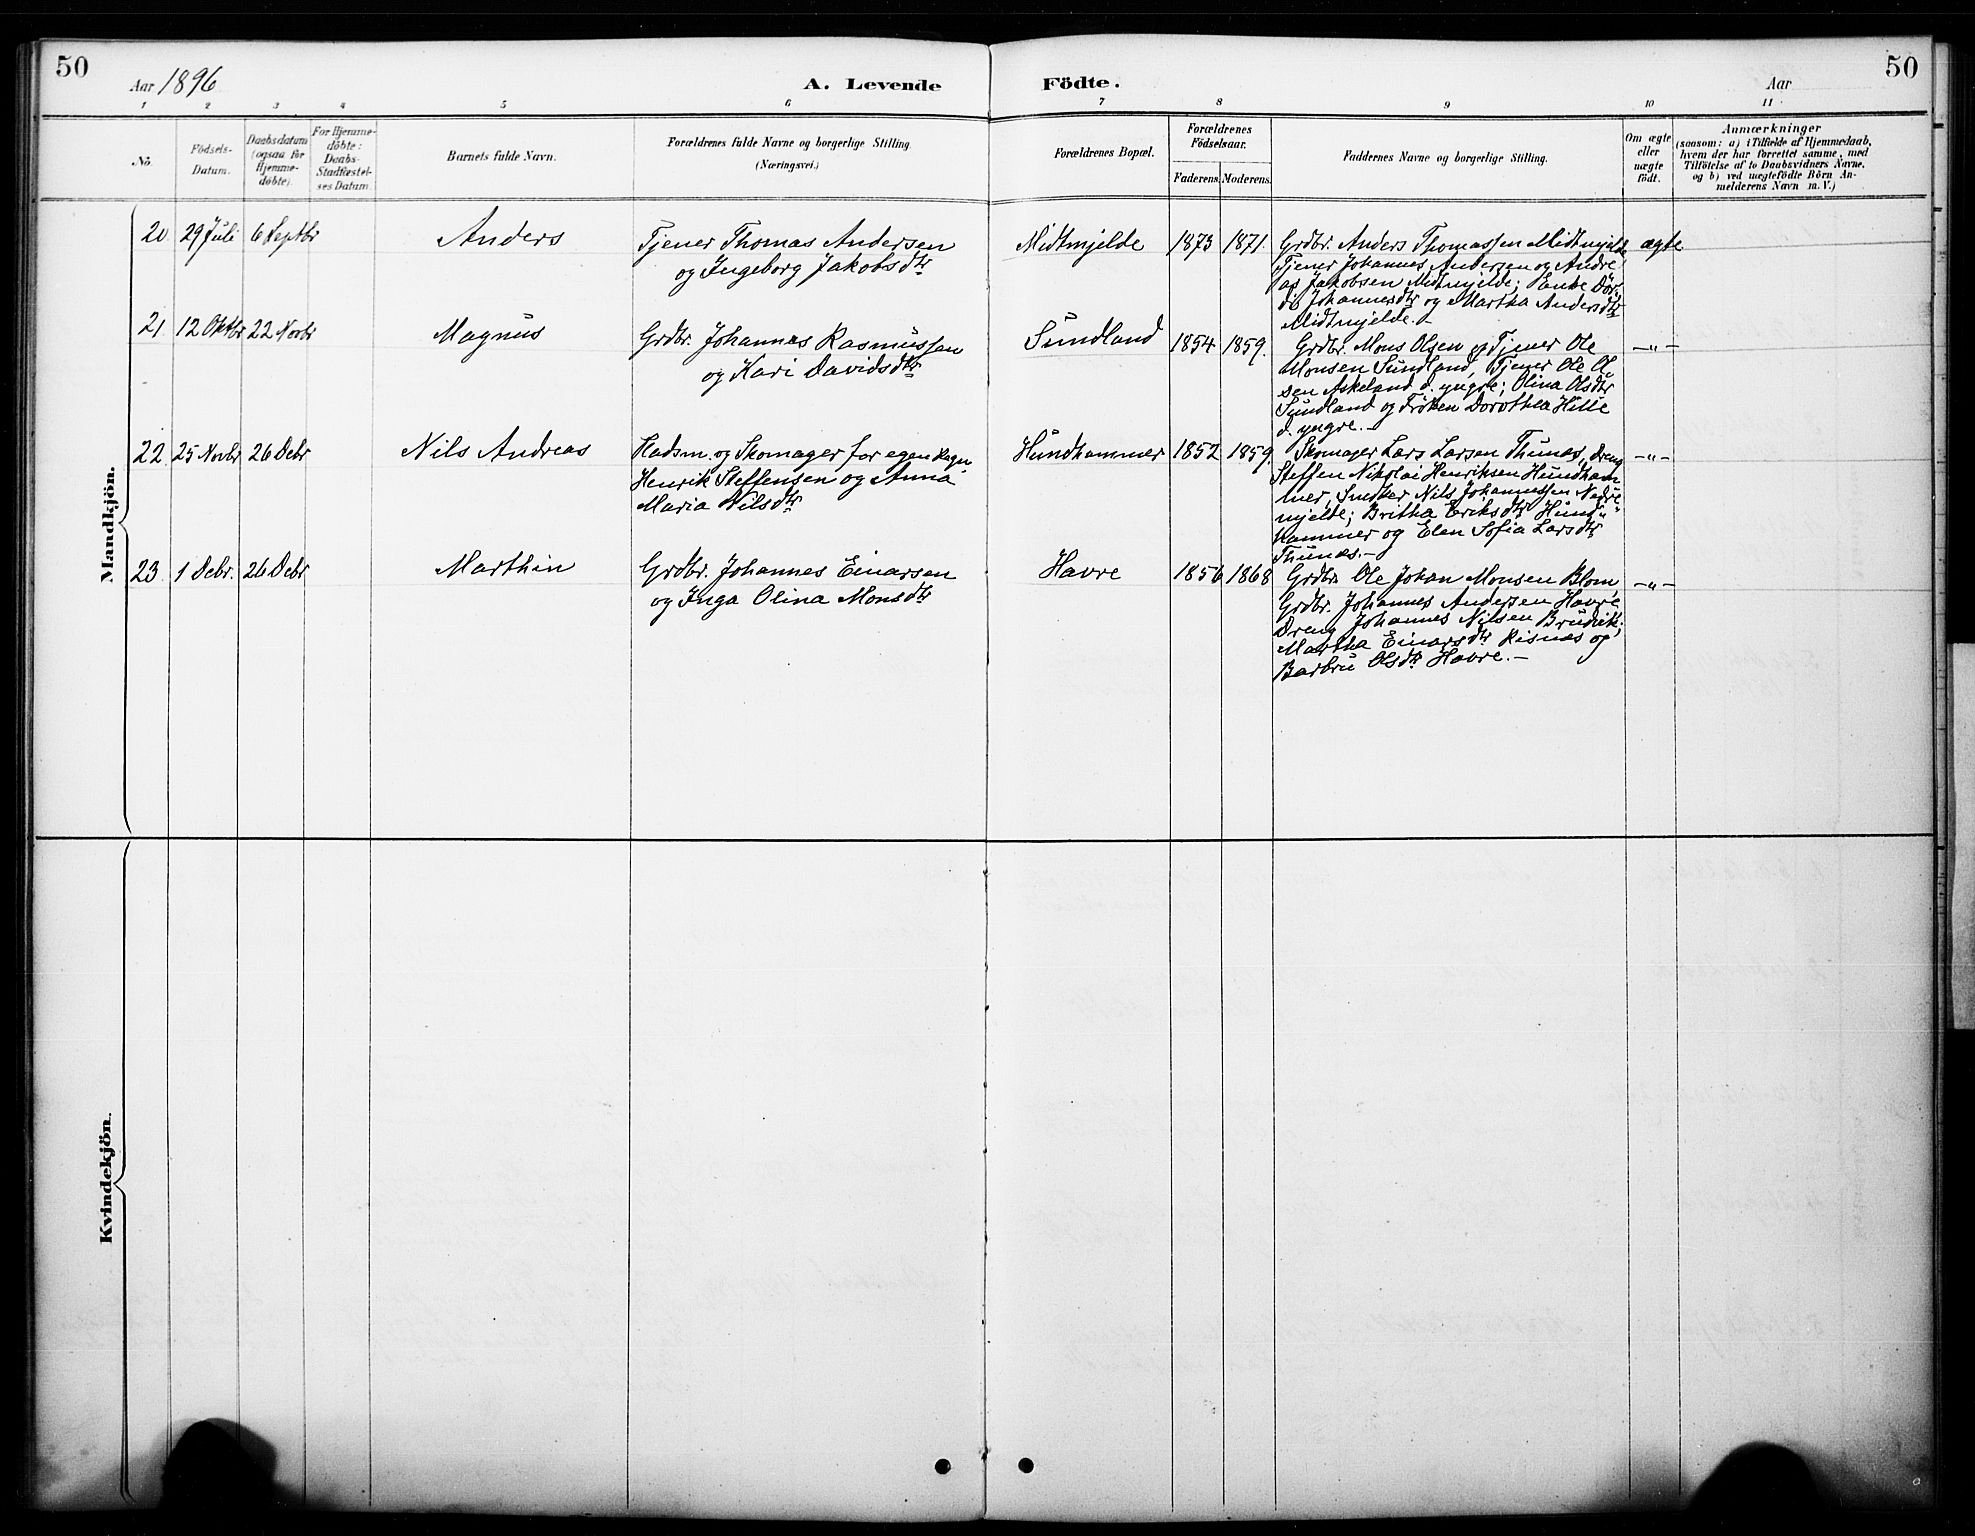 50
Aar 1896
A. Levende
Födte.
Aar
50
1 2 3 4 5 6 7 8 9 10 11
No.
Födsels-
Datum.
Daabsdatum
(ogsaa for
Hjemme-
döbte).
For Hjemme-
döbte:
Daabs-
Stadfæstel-
ses Datum.
Barnets fulde Navn.
Forældrenes fulde Navne og borgerlige Stilling.
(Næringsvei.)
Forældrenes Bopæl.
Forældrenes
Födselsaar.
Faderens.
Moderens.
Faddernes Navne og borgerlige Stilling.
Om ægte
eller
uægte
født.
Anmærkninger
(saasom: a) i Tilfælde af Hjemmedaab,
hvem der har forrettet samme, med
Tilföielse af to Daabsvidners Navne,
og b) ved uægtefödte Börn An-
melderens Navn m. V.)
Mandkjön.
20 29 Juli 6 Septbr
Anders
Tjener Thomas Andersen
og Ingeborg Jakobsdtr
Midtmjelde
1873 1871.
Grdbr. Anders Thomassen Midtmjelde
Tjener Johannes Andersen og Andre
as Jakobsen Midtmjelde; Enke Dor-
di Johannesdtr og Martha Andersdtr
Midtmjelde.-
ægte
21. 12 Oktbr 22 Novbr
Magnus
Grdbr. Johannes Rasmussen
og Kari Davidsdtr
Sundland
1854 1859.
Grdbr. Mons Olsen og Tjener Ole
Monsen Sundland, Tjener Ole Ol
sen Askeland d. yngre; Olina Olsdtr
Sundland og Frøken Dorothea Hille
d. yngre.-
-"-
22. 25 Novbr 26 Debr
Nils Andreas
Husm. og Skomager for egen Regn.
Henrik Steffensen og Anna
Maria Nilsdtr
Hundhammer
1852 1859.
Skomager Lars Larsen Thunæs, Dreng
Steffen Nikolai Henriksen Hundham
mer, Snedker Nils Johannessen Nedre
mjelde; Britha Eriksdtr Hund"
hammer og Elen Sofia Larsdtr
Thunæs.-
-"-
23. 1 Debr. 26 Debr
Marthin
Grdbr. Johannes Einarsen
og Inga Olina Monsdtr
Havre
1856 1868
Grdbr. Ole Johan Monsen Blom,
Grdbr. Johannes Andersen Havre,
Dreng Johannes Nilsen Brudvik;
Martha Einarsdtr Risnæs og
Barbru Olsdtr Havre.-
-"-
Kvindekjön.